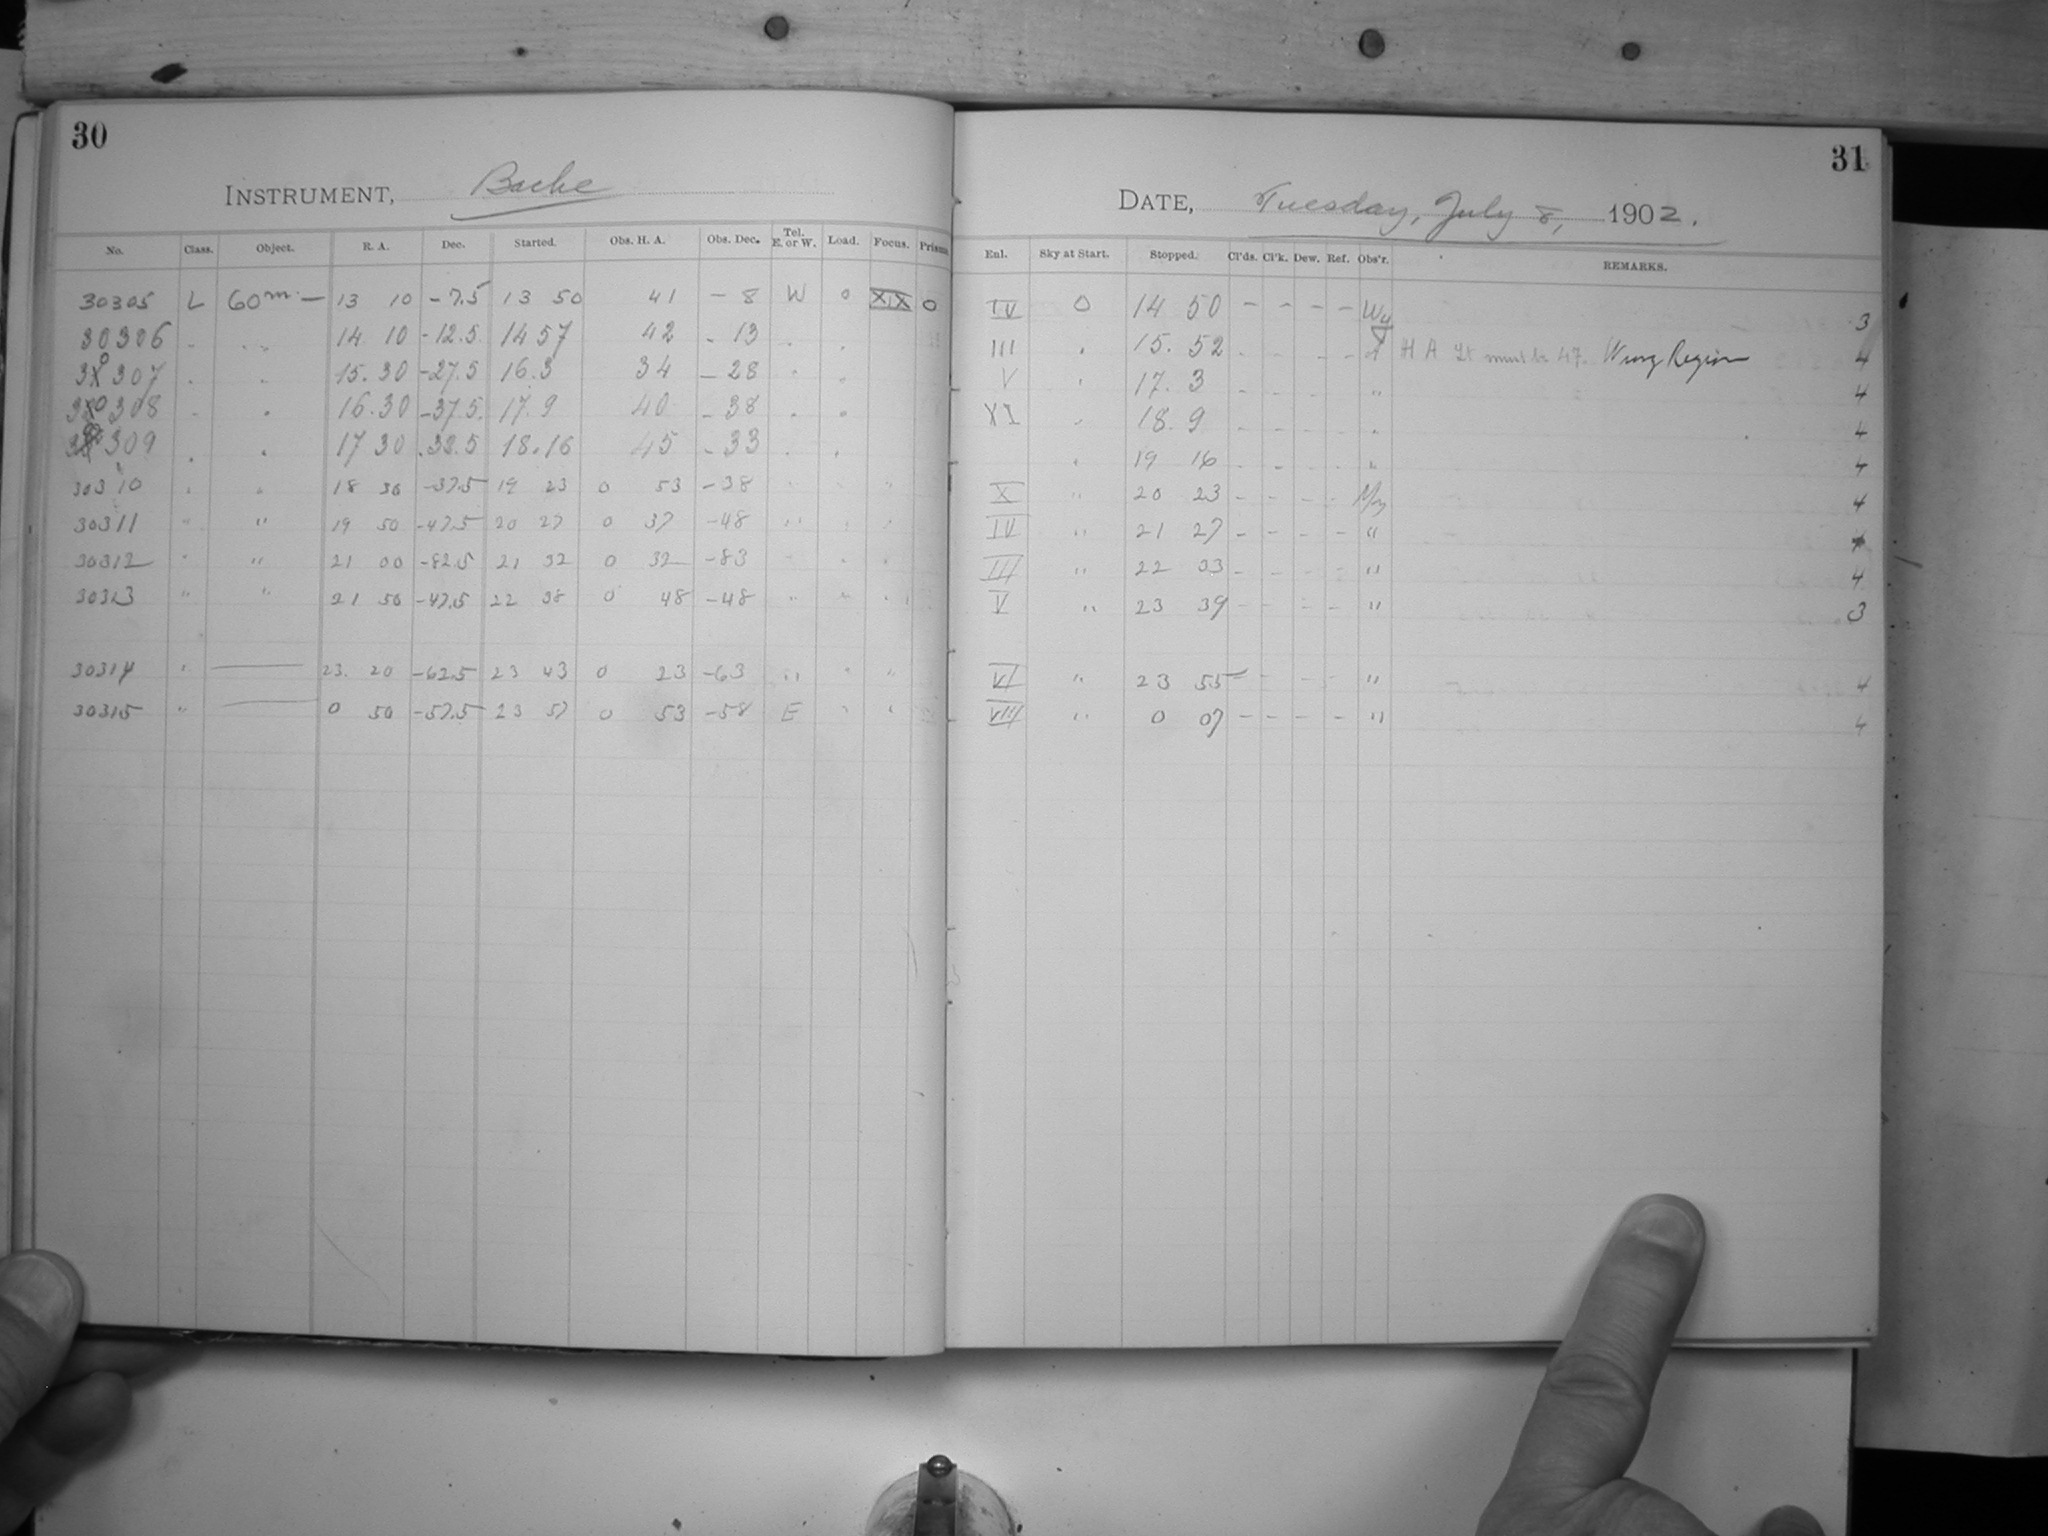 30
INSTRUMENT, Bache
No. Class. Object. R. A. Dec. Started. Obs. H. A. Obs. Dec. Tel. E. or W. Load. Focus. Prism.
30305 L 60m. — 13 10 -7.5 13 50 41 - 8 W 0 XIX 0
30306 14 10 -12.5 14 57 42 - 13
30307 15.30 -27.5 16.3 34 - 28
30308 16.30 -37.5 17.9 40 - 38
309 17 30 18.16 45 - 33
30310 18 30 -37.5 19 23 0 53 -38
30311 " " 19 50 -47.5 20 27 0 37 -48 "
30312 " " 21 00 -82.5 21 32 0 32 -83
30313 " " 21 50 -47.5 22 38 0 48 -48 "
30314 " — 23. 20 -62.5 23 43 0 23 -63 " " "
30315 " — 0 50 -57.5 23 57 0 53 -58 E " "
31
DATE, Tuesday, July 8, 1902.
Enl. Sky at Start. Stopped. Cl'ds. Cl'k. Dew. Ref. Obs'r. REMARKS.
IV 0 14 50 - - - - 3
III 15. 52 - - - - H A must be 47. Wrong Region 4
V 17. 3 - - - - " 4
XI 18. 9 - - - - 4
19 16 - - - - 4
X " 20 23 - - - - 4
IV " 21 27 - - - - "
III " 22 33 - - - - " 4
V " 23 39 - - - - " 3
VI " 23 55 - - - - " 4
VIII " 0 07 - - - - " 4